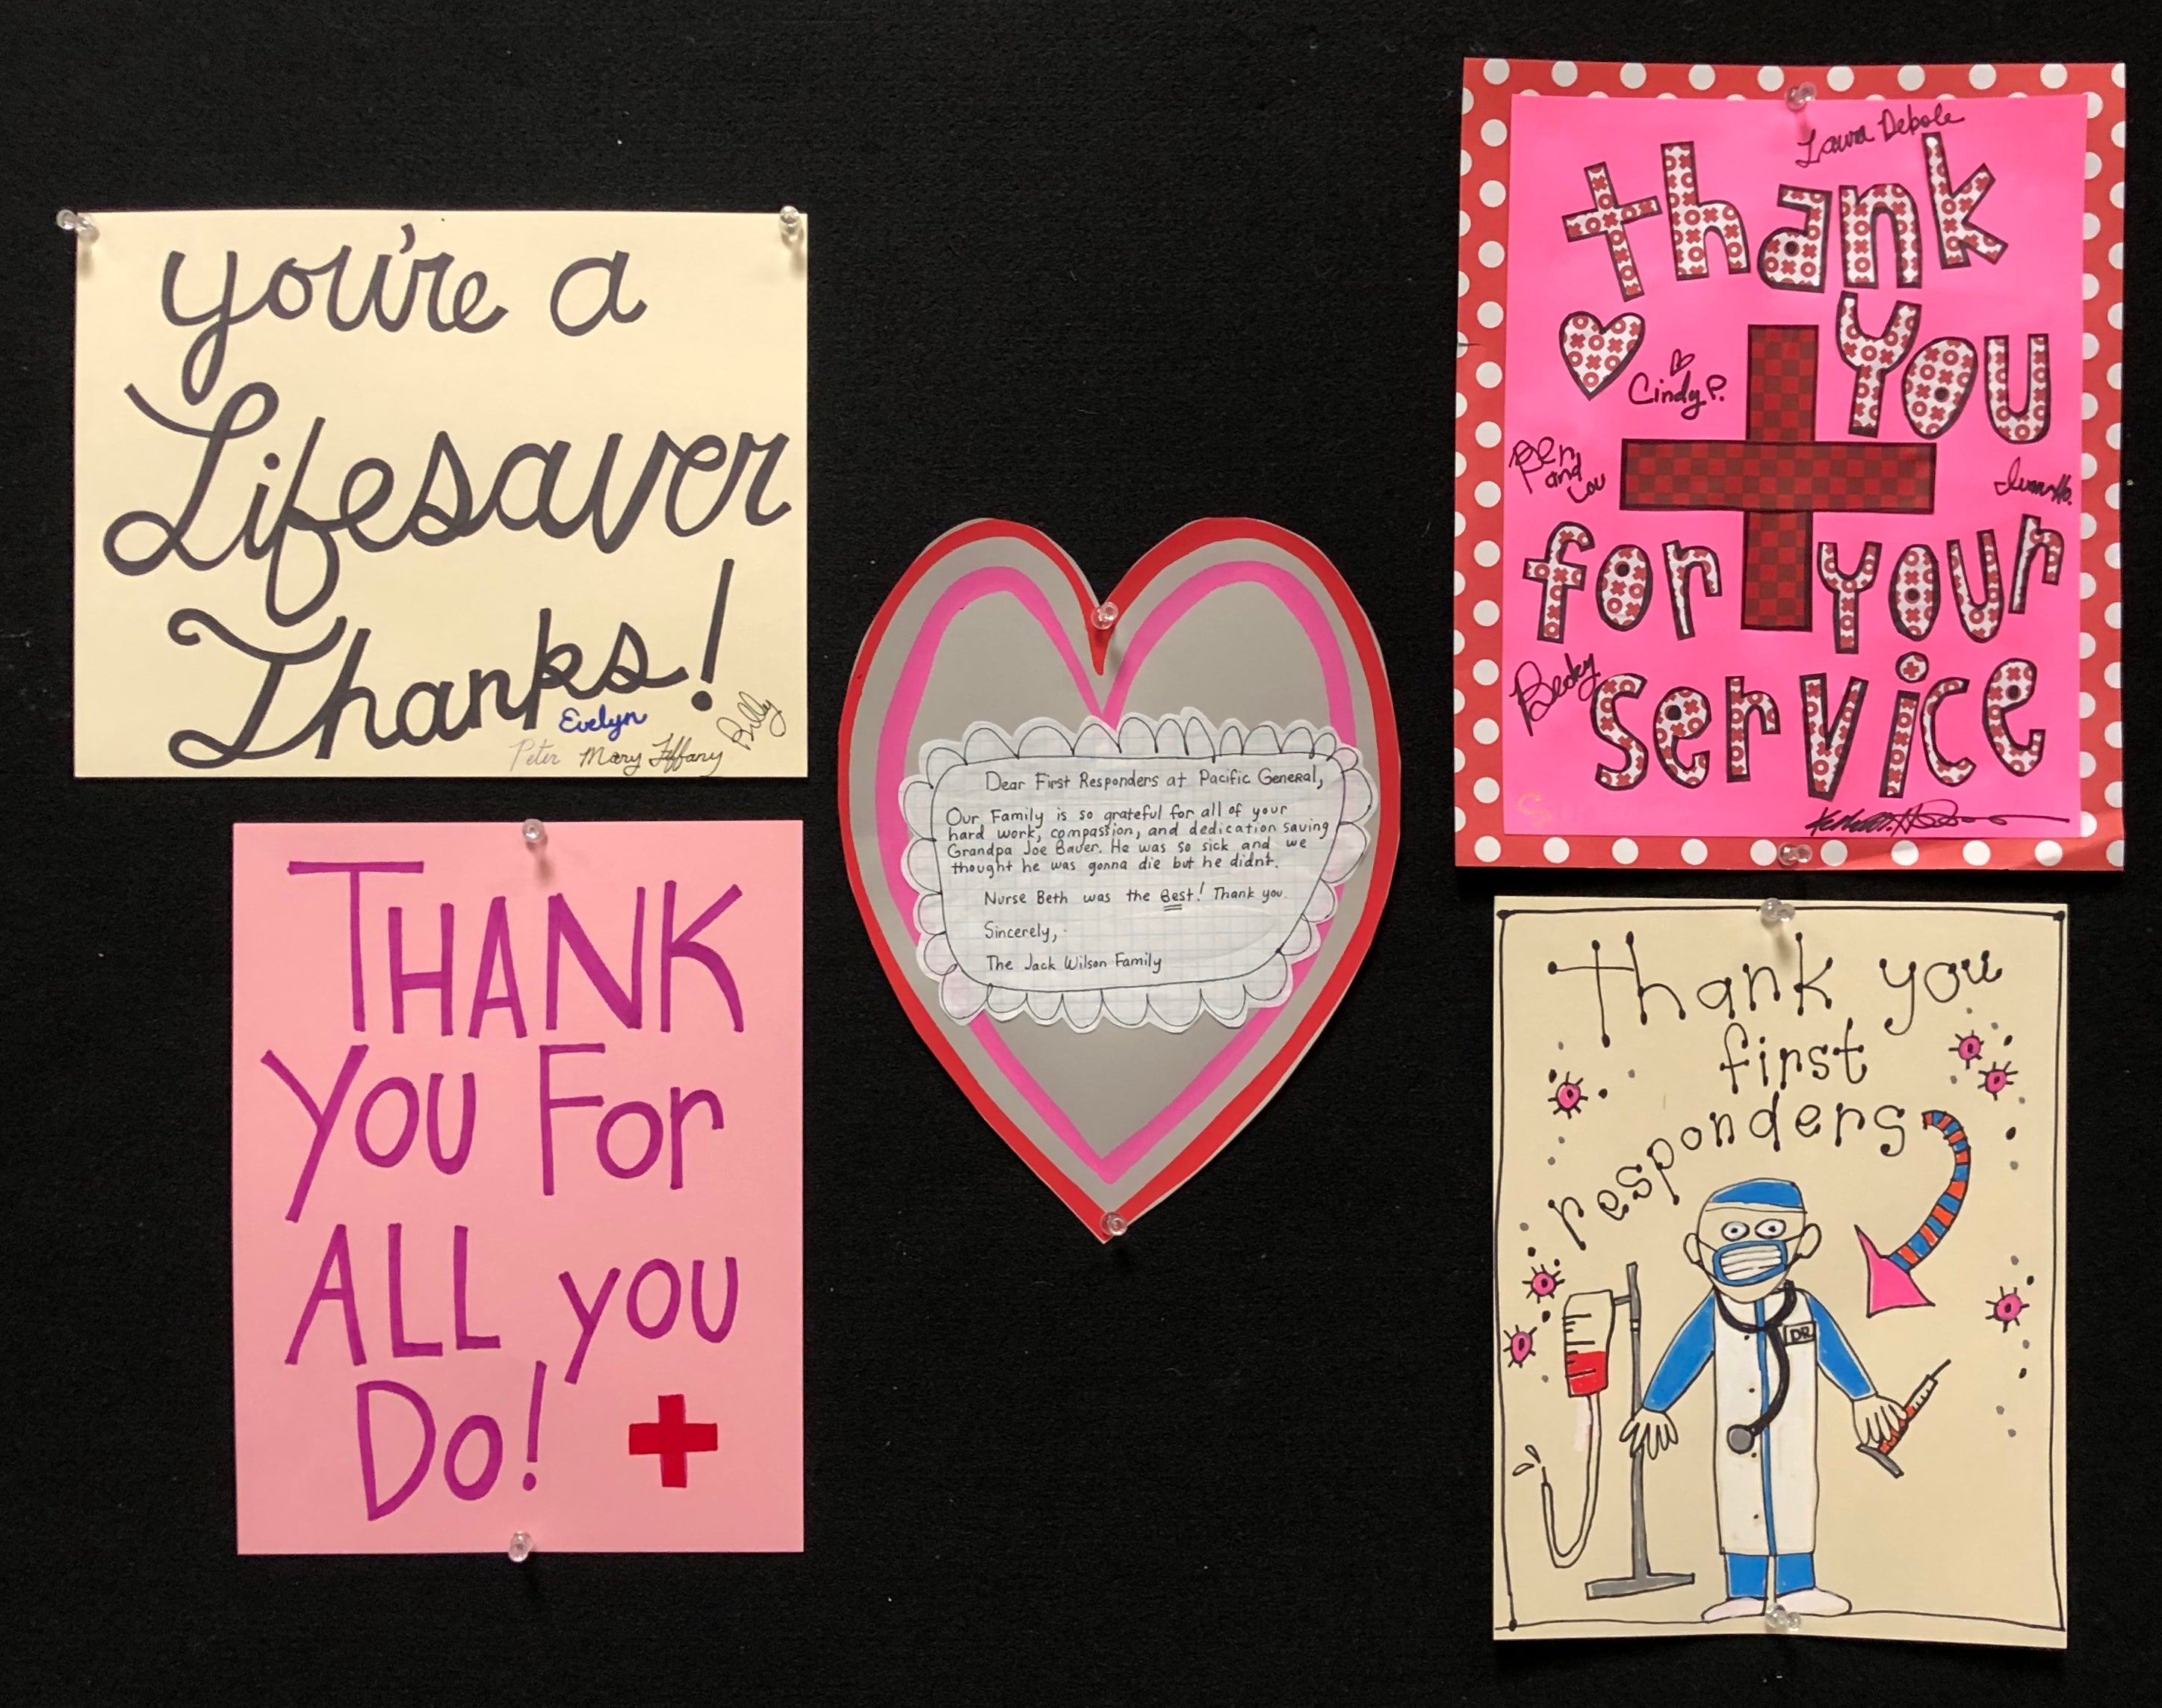 you're a
Lifesaver
Thanks!
Evelyn
Billy
Peter Mary Tiffany
THANK
YOU FOr
ALL you
Do!
Dear First Responders at Pacific General,
Our Family is so grateful for all of your
hard work, compassion, and dedication saving
Grandpa Joe Bauer. He was so sick and we
thought he was gonna die but he didn't.
Nurse Beth was the Best! Thank you
Sincerely,
The Jack Wilson Family
Laura Debole
thank
You
Cindy P.
Ben
and
Lou
for your
Becky
service
Thank you
first
responders
DR.